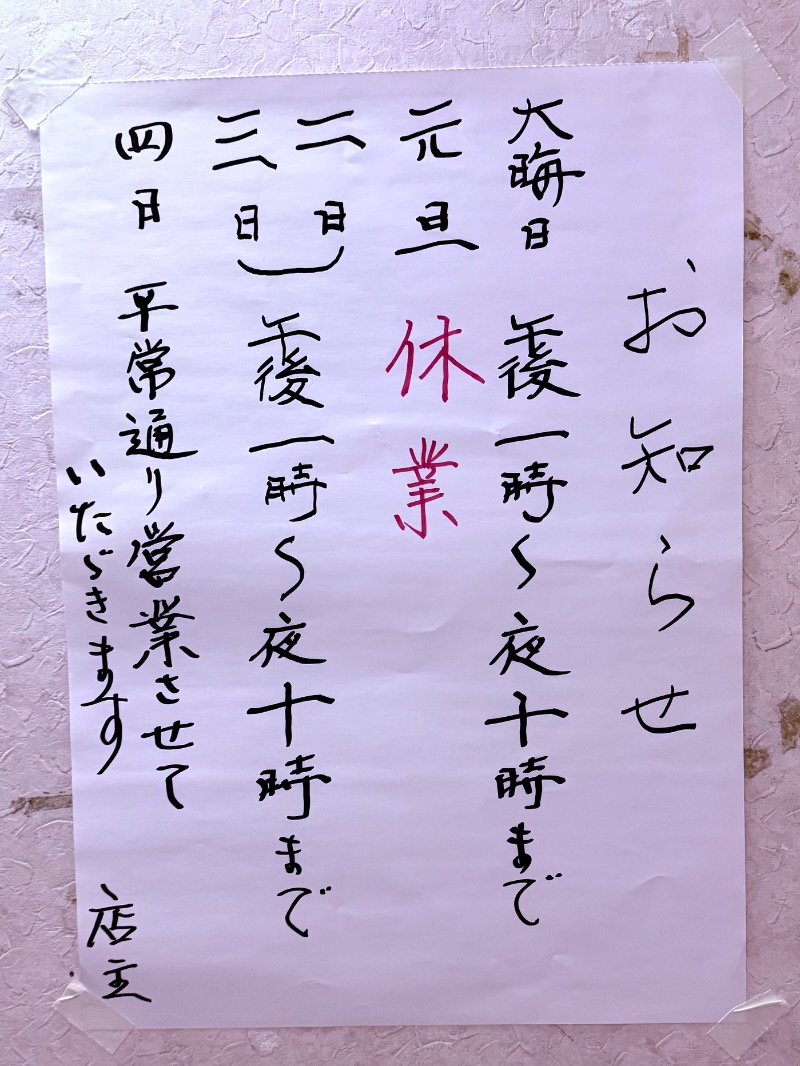 お知らせ
大晦日 午後一時〜夜十時まで
元旦 休業
二日
三日 午後一時〜夜十時まで
四日 平常通り営業させて
いただきます
店主